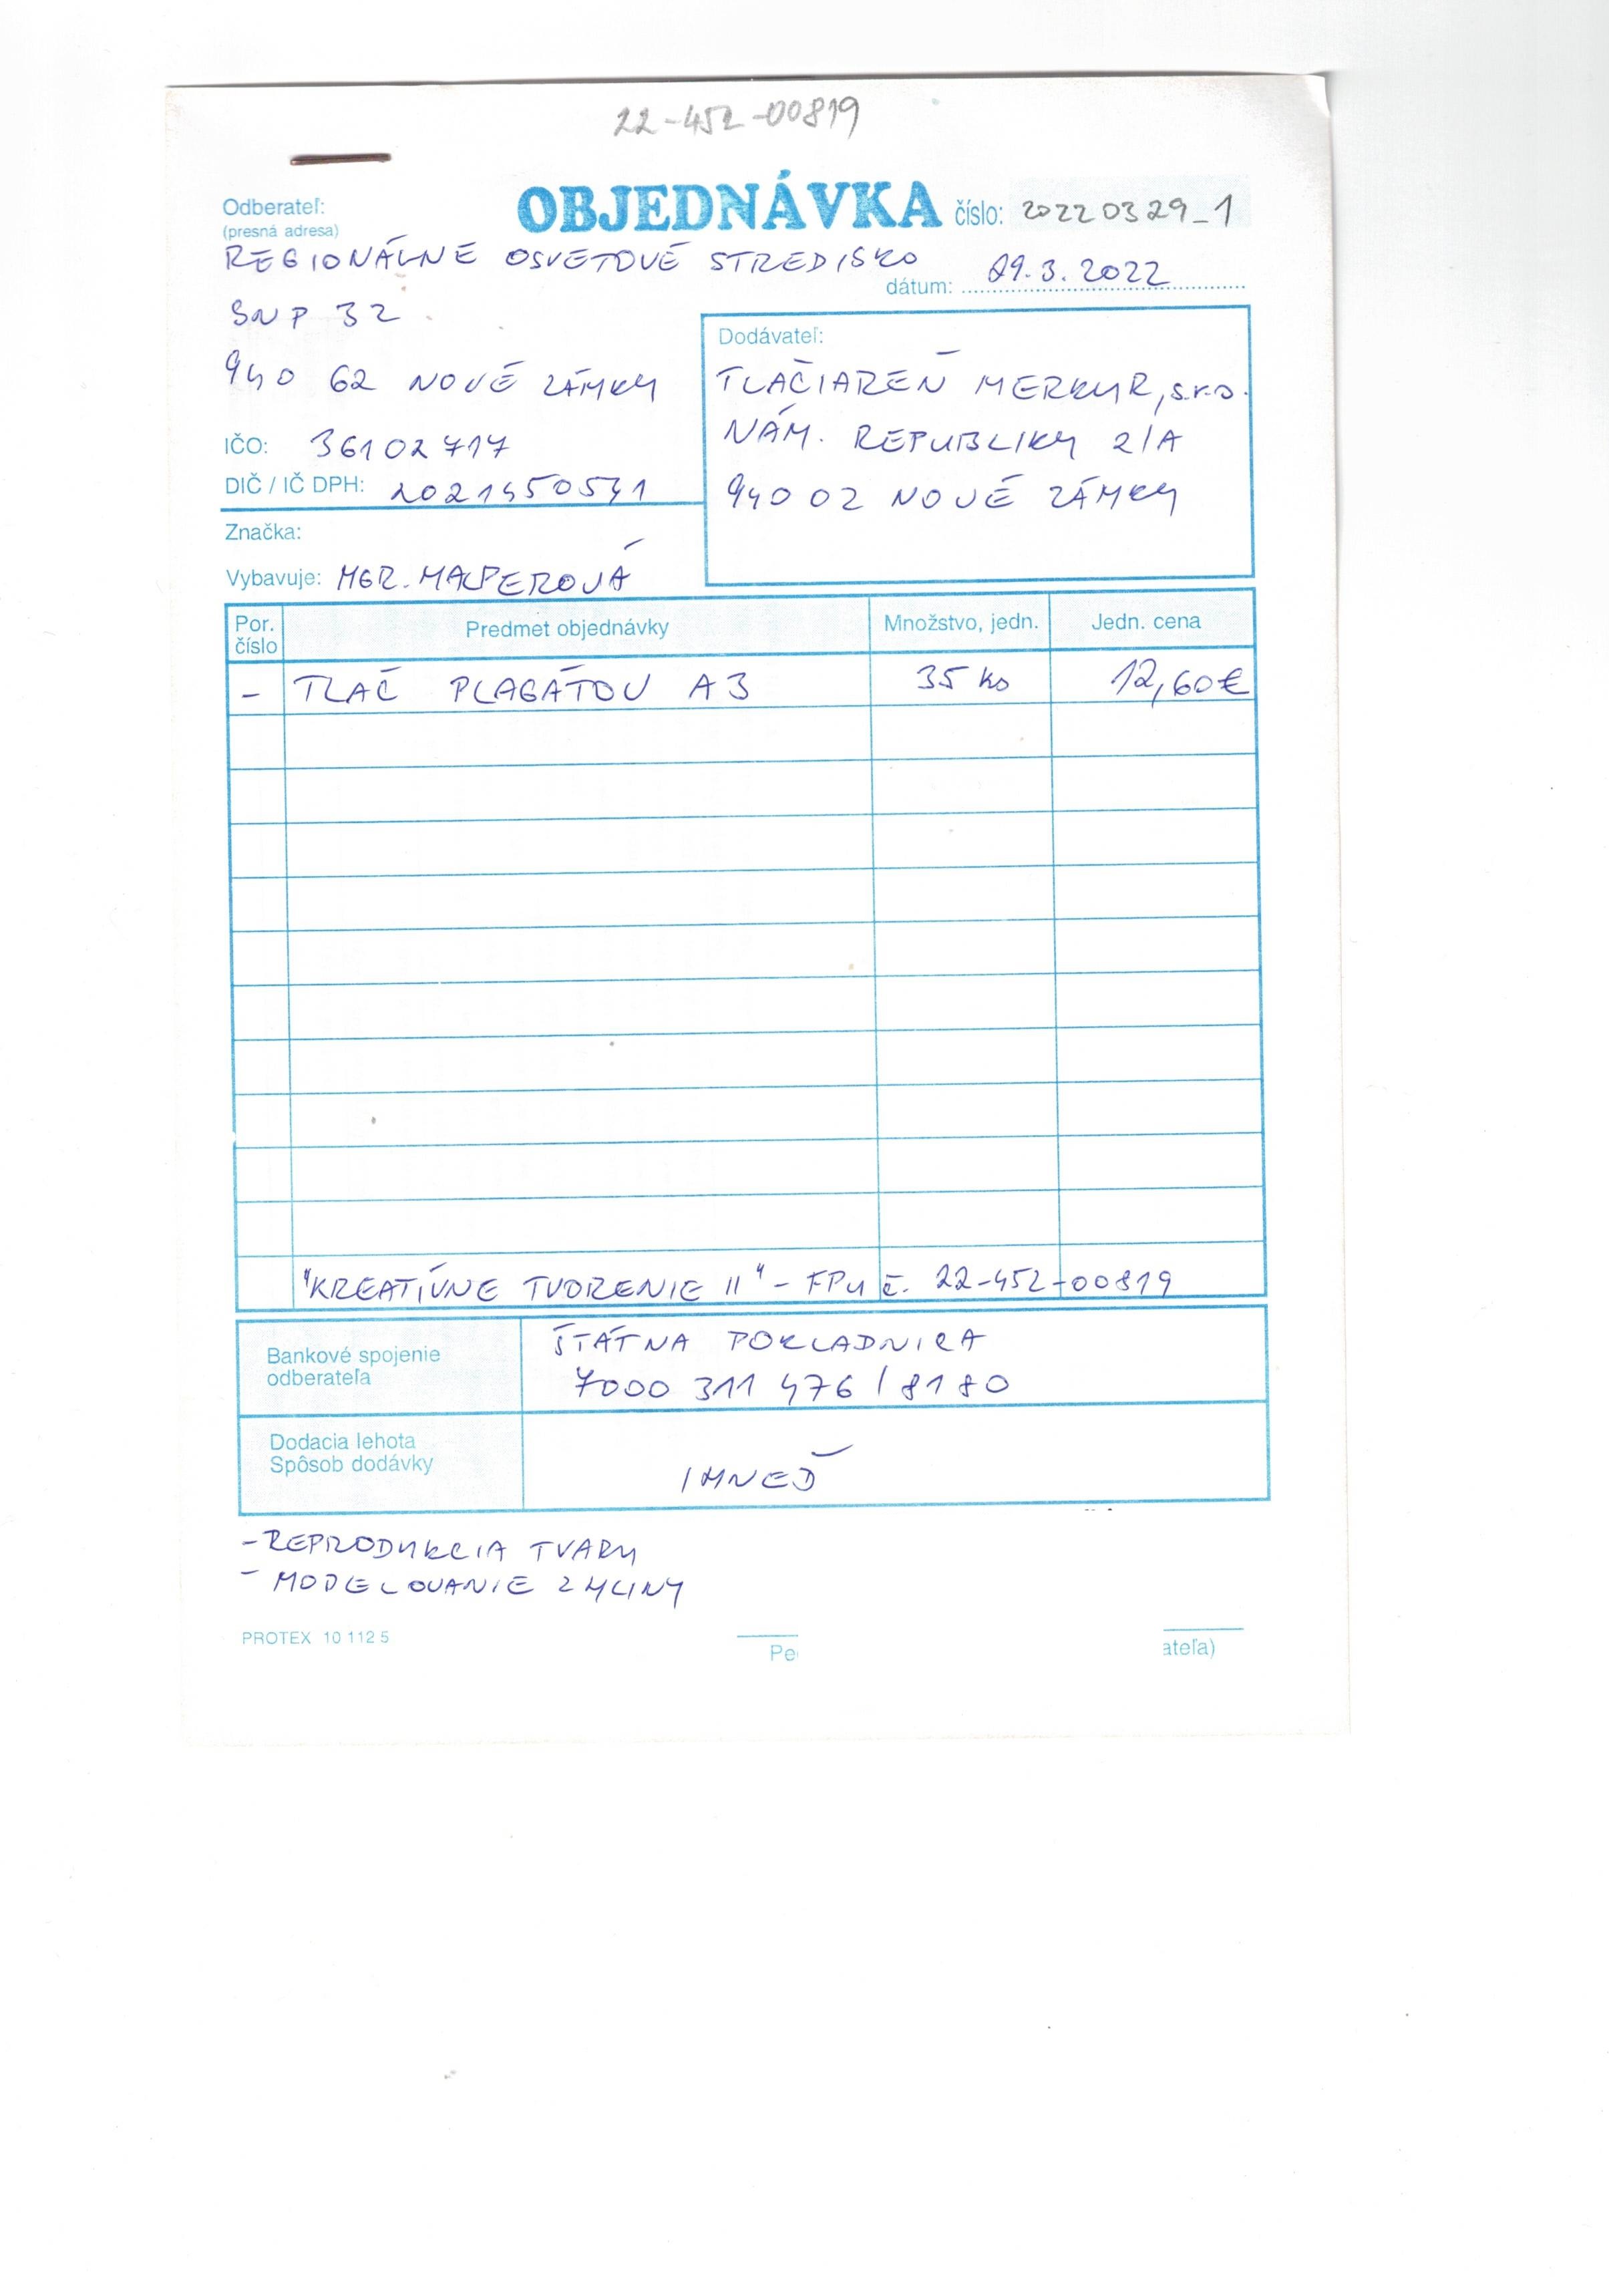 22-452-00819
OBJEDNÁVKA číslo: 20220329_1
Odberateľ:
(presná adresa)
REGIONÁLNE OSVETOVÉ STREDISKO
dátum: 29.3.2022
SNP 32
940 62 NOVÉ ZÁMKY
IČO: 36102717
DIČ / IČ DPH: 2021450541
Dodávateľ:
TLAČIAREŇ MERKUR, s.r.o.
NÁM. REPUBLIKY 2/A
940 02 NOVÉ ZÁMKY
Značka:
Vybavuje: MGR. MALPEROVÁ
Por. číslo Predmet objednávky Množstvo, jedn. Jedn. cena
- TLAČ PLAGÁTOV A3 35 ks 12,60€
"KREATÍVNE TVORENIE II" - FPU č. 22-452-00819
Bankové spojenie
odberateľa
ŠTÁTNA POKLADNICA
7000 311 476 / 8180
Dodacia lehota
Spôsob dodávky
IHNEĎ
- REPRODUKCIA TVARU
- MODELOVANIE Z HLINY
PROTEX 10 112 5
Pe
ateľa)